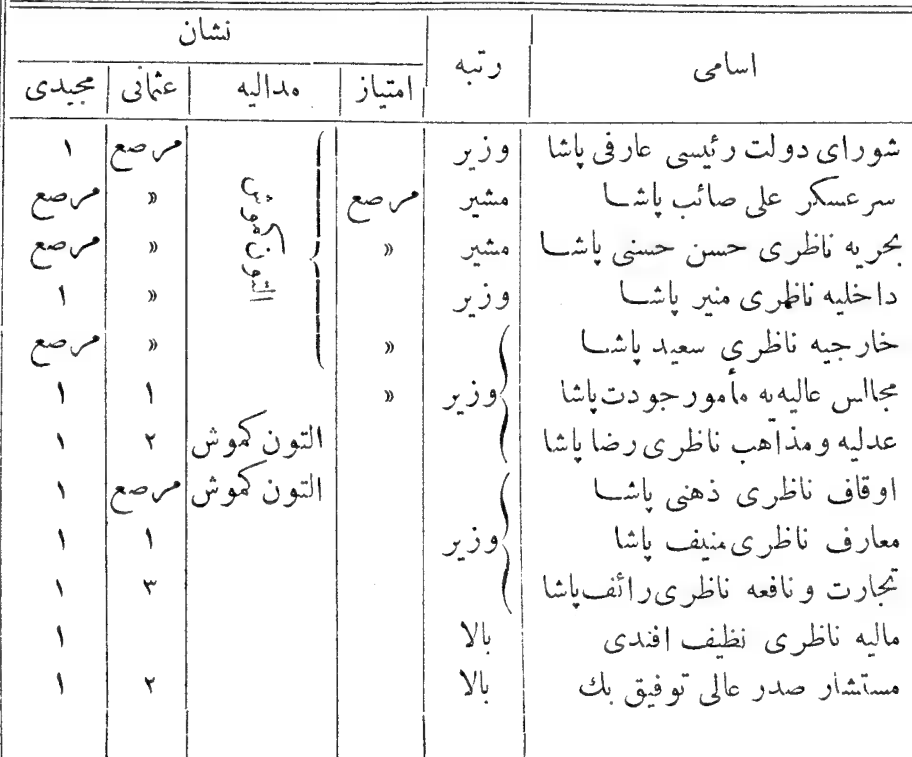 نشان
اسامی رتبه امتیاز مدالیه عثمانی مجیدی
شورای دولت رئیسی عارفی پاشا وزیر مرصع ١
سرعسكر علی صائب پاشا مشیر مرصع » مرصع
بحریه ناظری حسن حسنی پاشا مشیر » » مرصع
داخلیه ناظری منیر پاشا وزیر » ١
التون كموش
خارجیه ناظری سعید پاشا » » مرصع
مجالس عالیه‌یه مأمور جودت پاشا وزیر » ١ ١
عدلیه ومذاهب ناظری رضا پاشا التون كموش ٢ ١
اوقاف ناظری ذهنی پاشا التون كموش مرصع ١
معارف ناظری منیف پاشا وزیر ١ ١
تجارت ونافعه ناظری رائف پاشا ٣ ١
مالیه ناظری نظیف افندی بالا ١
مستشار صدر عالی توفیق بك بالا ٢ ١